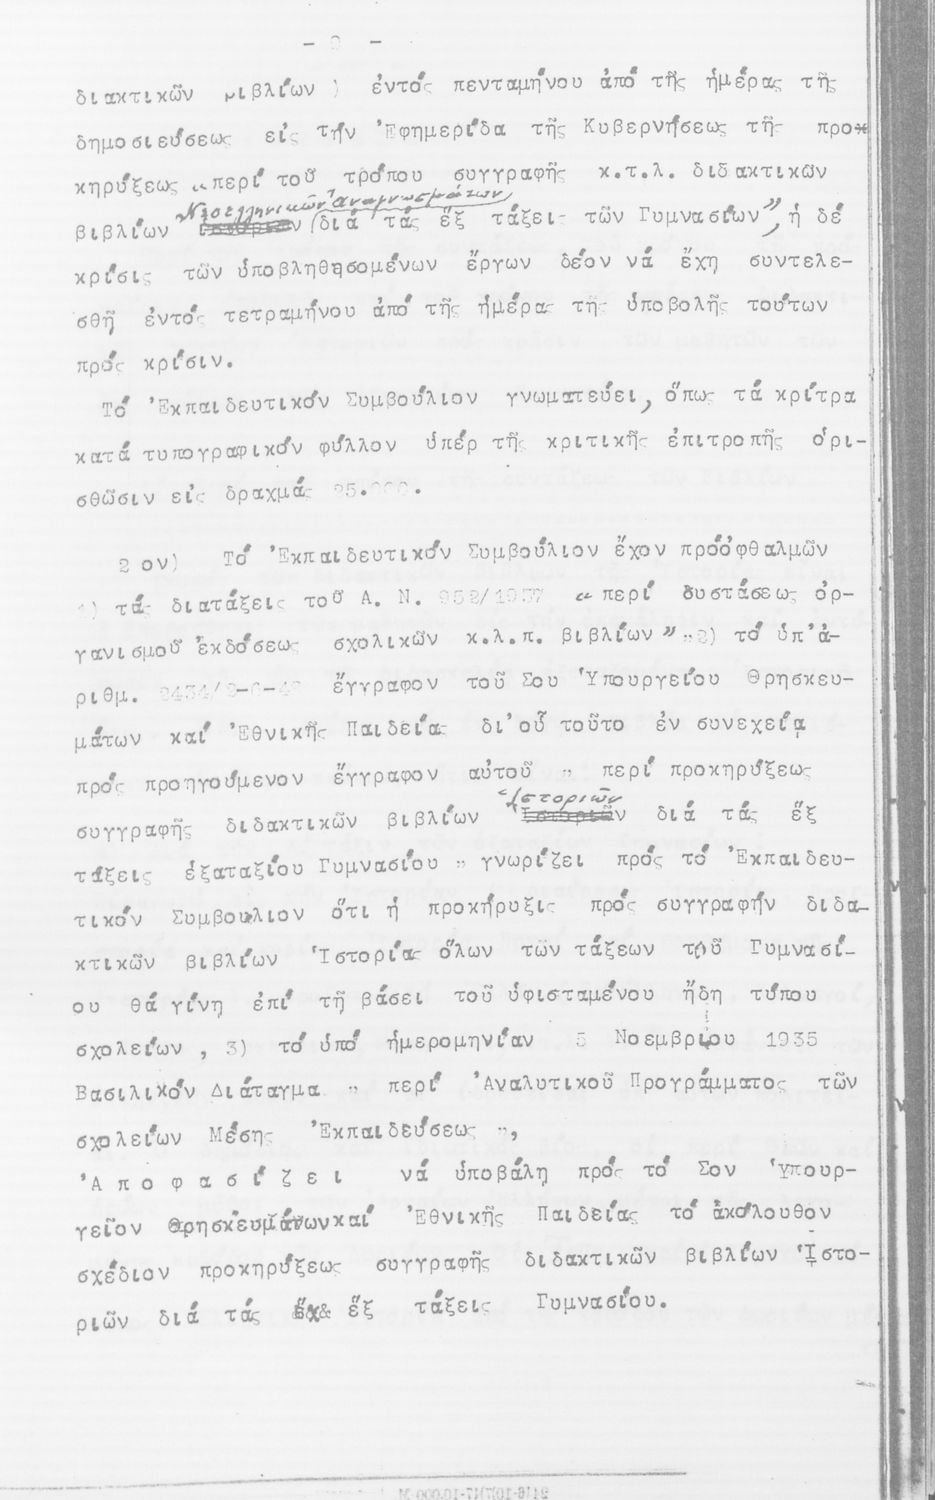 διακτικῶν βιβλίων ) ἐντός πενταμήνου ἀπό τῆς ἡμέρας τῆς
δημοσιεύσεως εἰς τήν Ἐφημερίδα τῆς Κυβερνήσεως τῆς προ
κηρύξεως " περί τοῦ τρόπου συγγραφῆς κ.τ.λ. διδακτικῶν
Νεοελληνικῶν Ἀναγνωσμάτων
βιβλίων διά τάς ἕξ τάξεις τῶν Γυμνασίων", ἡ δέ
κρίσις τῶν ὑποβληθησομένων ἔργων δέον νά ἔχη συντελε-
σθῆ ἐντός τετραμήνου ἀπό τῆς ἡμέρας τῆς ὑποβολῆς τούτων
πρός κρίσιν.
Τό Ἐκπαιδευτικόν Συμβούλιον γνωματεύει, ὅπως τά κρίτρα
κατά τυπογραφικόν φύλλον ὑπέρ τῆς κριτικῆς ἐπιτροπῆς ὁρι-
σθῶσιν εἰς δραχμάς
2 ον) Τό Ἐκπαιδευτικόν Συμβούλιον ἔχον πρόὀφθαλμῶν
1) τάς διατάξεις τοῦ Α. Ν. 952/1937 " περί συστάσεως ὀρ-
γανισμοῦ ἐκδόσεως σχολικῶν κ.λ.π. βιβλίων" "2) τό ὑπ'ἀ-
ριθμ. ἔγγραφον τοῦ Σου Ὑπουργείου Θρησκευ-
μάτων καί Ἐθνικῆς Παιδείας δι'οὗ τοῦτο ἐν συνεχείᾳ
πρός προηγούμενον ἔγγραφον αὐτοῦ " περί προκηρύξεως
Ἱστοριῶν
συγγραφῆς διδακτικῶν βιβλίων διά τάς ἕξ
τάξεις ἑξαταξίου Γυμνασίου " γνωρίζει πρός τό Ἐκπαιδευ-
τικόν Συμβούλιον ὅτι ἡ προκήρυξις πρός συγγραφήν διδα-
κτικῶν βιβλίων Ἱστορίας ὅλων τῶν τάξεων τοῦ Γυμνασί-
ου θά γίνη ἐπί τῆ βάσει τοῦ ὑφισταμένου ἤδη τύπου
σχολείων , 3) τό ὑπό ἡμερομηνίαν 5 Νοεμβρίου 1935
Βασιλικόν Διάταγμα " περί Ἀναλυτικοῦ Προγράμματος τῶν
σχολείων Μέσης Ἐκπαιδεύσεως ",
Ἀ π ο φ α σ ί ζ ε ι νά ὑποβάλη πρός τό Σον Ὑπουρ-
γεῖον Θρησκευμάτωνκαί Ἐθνικῆς Παιδείας τό ἀκόλουθον
σχέδιον προκηρύξεως συγγραφῆς διδακτικῶν βιβλίων Ἱστο-
ριῶν διά τάς ἕξ τάξεις Γυμνασίου.